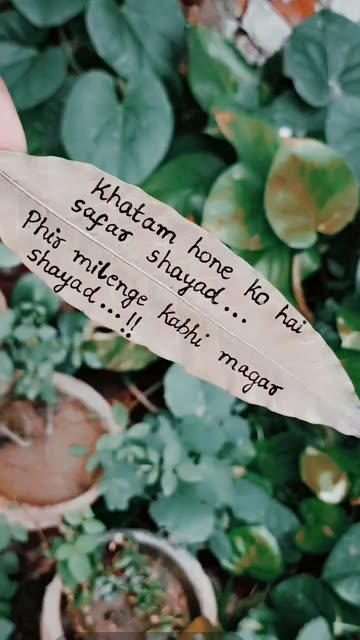 Khatam hone ko hai
safar shayad...
Phir milenge kabhi magar
shayad...!!